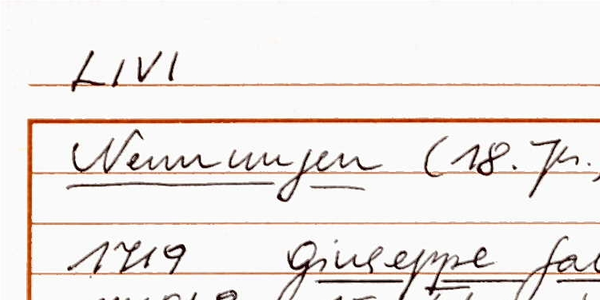 LIVI
Nennungen (18. Jh.,
1719 Giuseppe